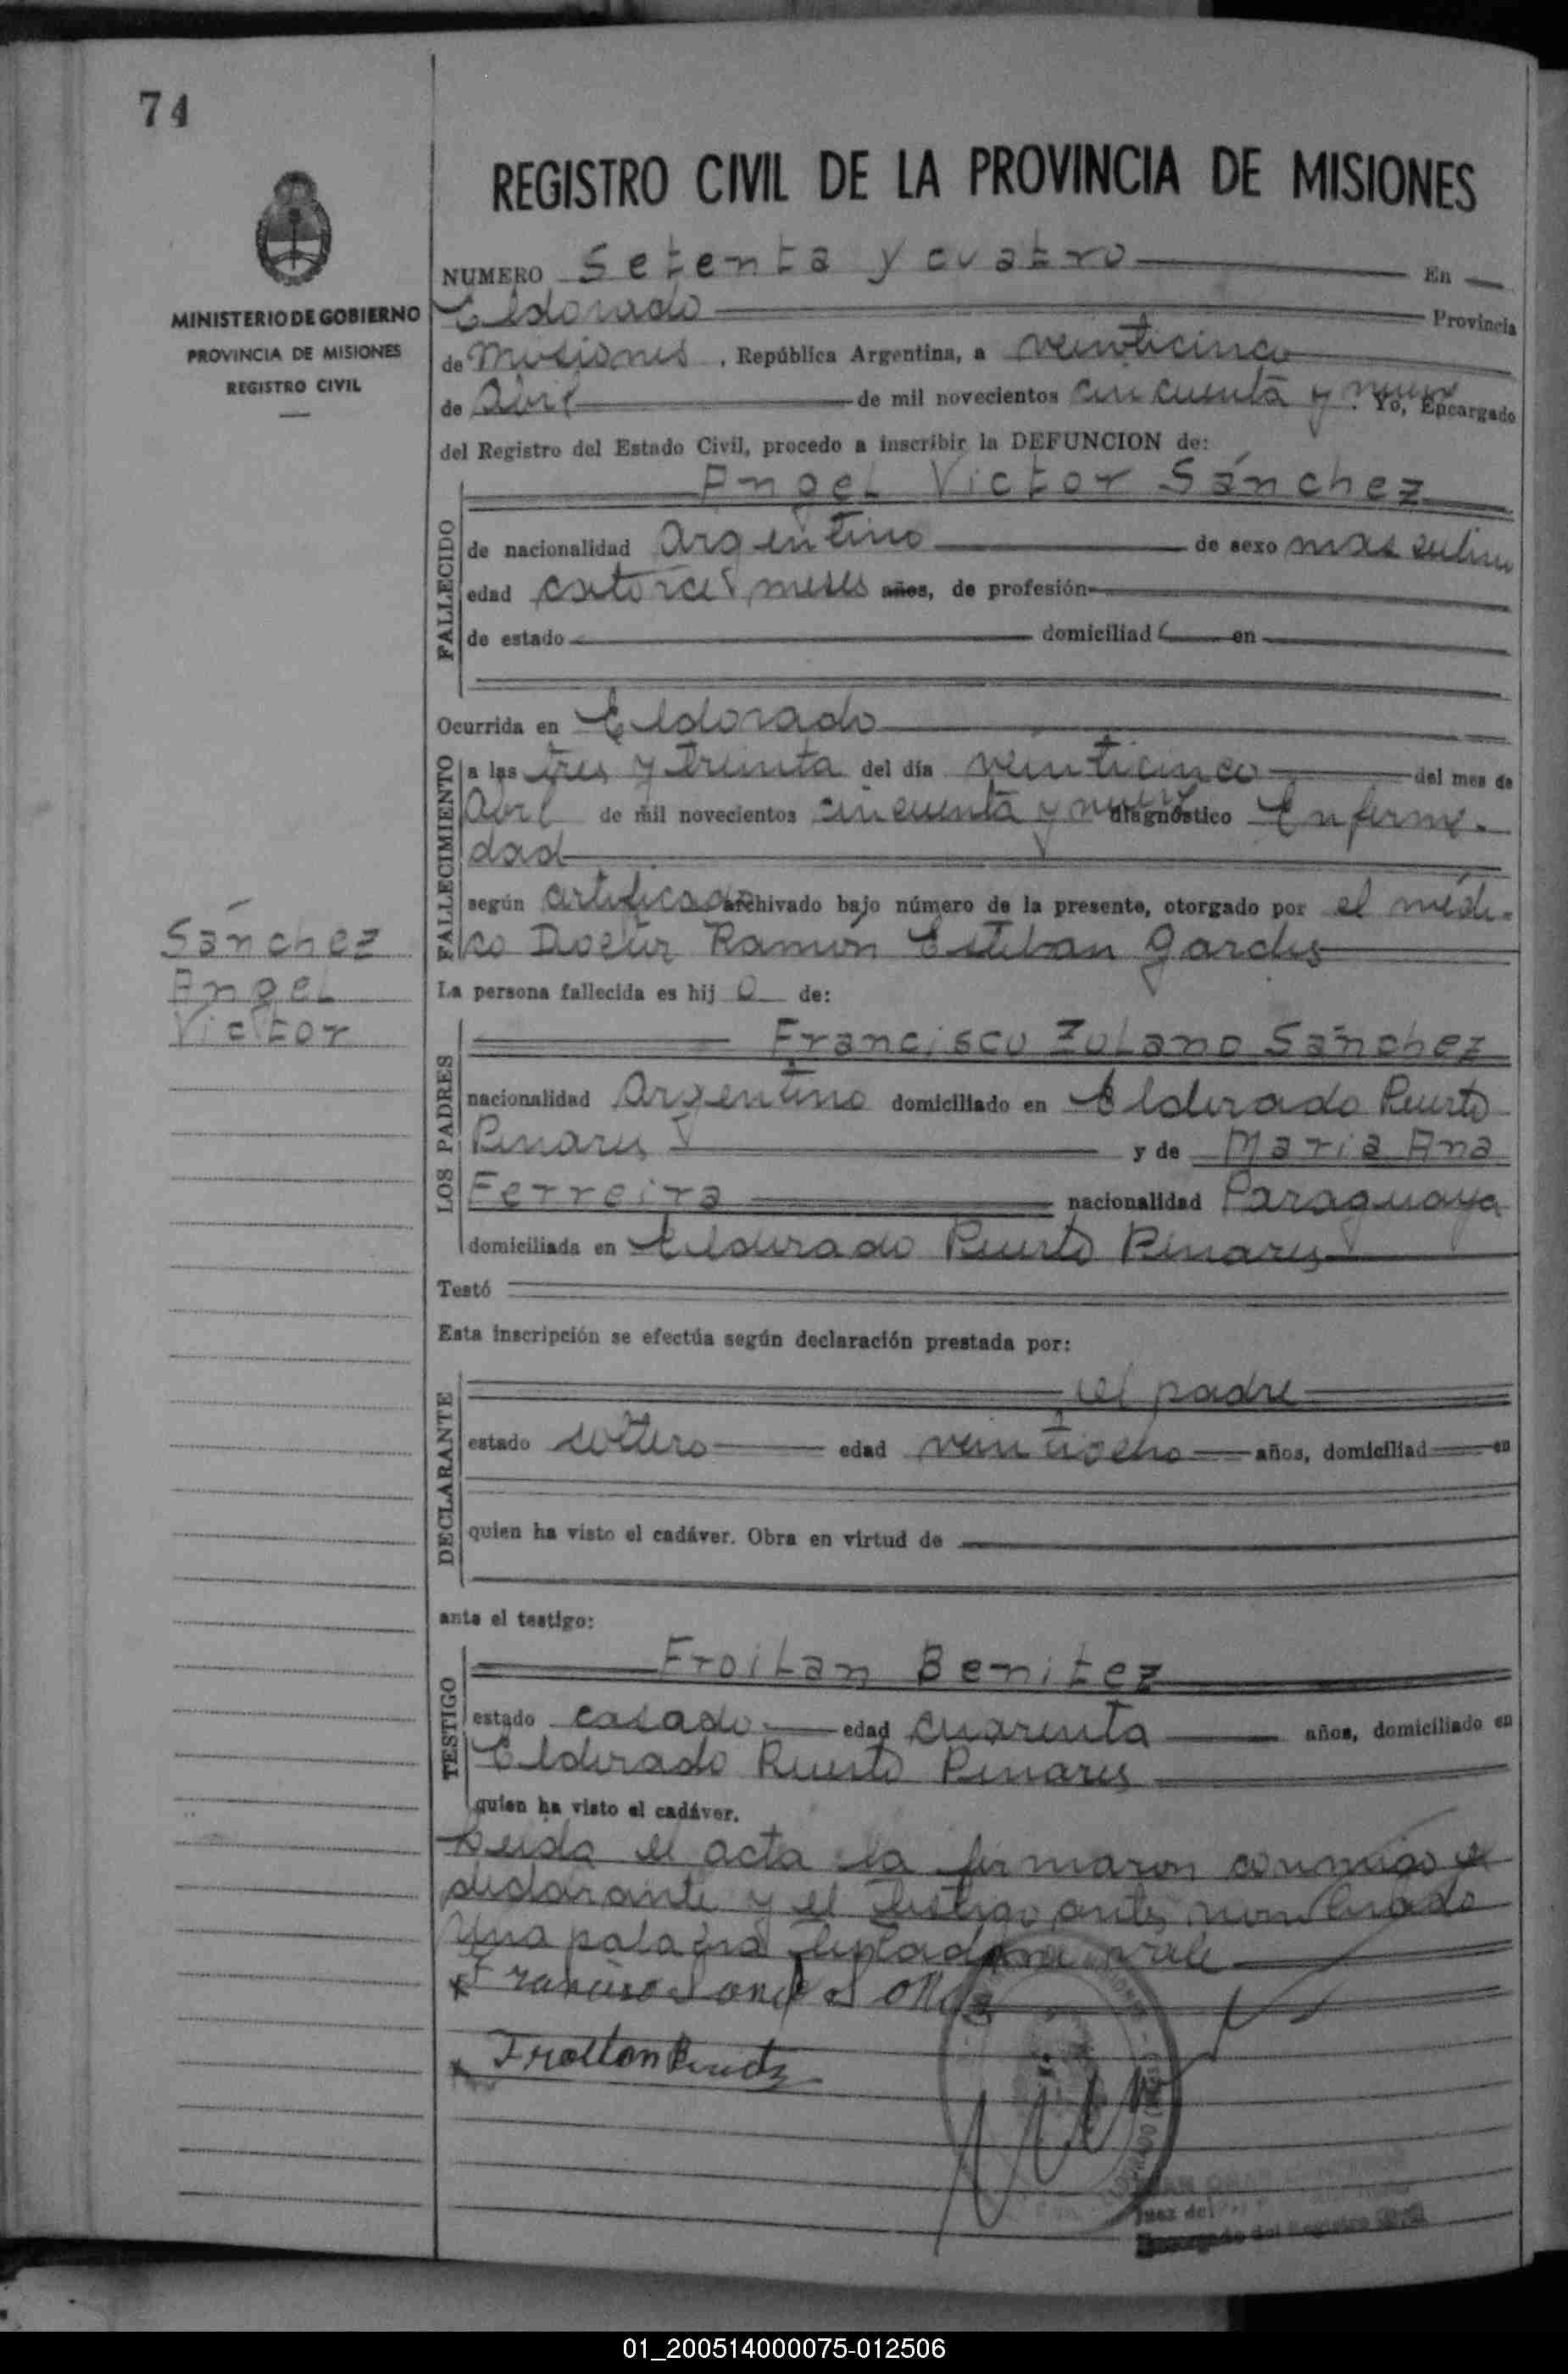 74
REGISTRO CIVIL DE LA PROVINCIA DE MISIONES
MINISTERIO DE GOBIERNO
PROVINCIA DE MISIONES
REGISTRO CIVIL
NUMERO Setenta y cuatro En
Eldorado Provincia
de Misiones, República Argentina, a veinticinco
de Abril de mil novecientos cincuenta y nueve. Yo, Encargado
del Registro del Estado Civil, procedo a inscribir la DEFUNCION de:
Angel Victor Sánchez
FALLECIDO
de nacionalidad Argentino de sexo masculino
edad catorce meses años, de profesión
de estado domiciliad en
Ocurrida en Eldorado
FALLECIMIENTO
a las tres y treinta del día veinticinco del mes de
Abril de mil novecientos cincuenta y nueve diagnóstico Enferme-
dad
según certificado archivado bajo número de la presente, otorgado por el médi-
co Doctor Ramón Esteban Gardes
Sánchez
Angel
Victor
La persona fallecida es hij o de:
LOS PADRES
Francisco Zolano Sánchez
nacionalidad Argentino domiciliado en Eldorado Puerto
Pinares y de Maria Ana
Ferreira nacionalidad Paraguaya
domiciliada en Eldorado Puerto Pinares
Testó
Esta inscripción se efectúa según declaración prestada por:
DECLARANTE
el padre
estado soltero edad veintiocho años, domiciliad en
quien ha visto el cadáver. Obra en virtud de
ante el testigo:
TESTIGO
Froilan Benitez
estado casado edad cuarenta años, domiciliado en
Eldorado Puerto Pinares
quien ha visto el cadáver.
Leida el acta la firmaron conmigo el
declarante y el testigo antes nombrado
Una palabra testada no vale
Juez de
Encargado del Registro Civil
01_200514000075-012506